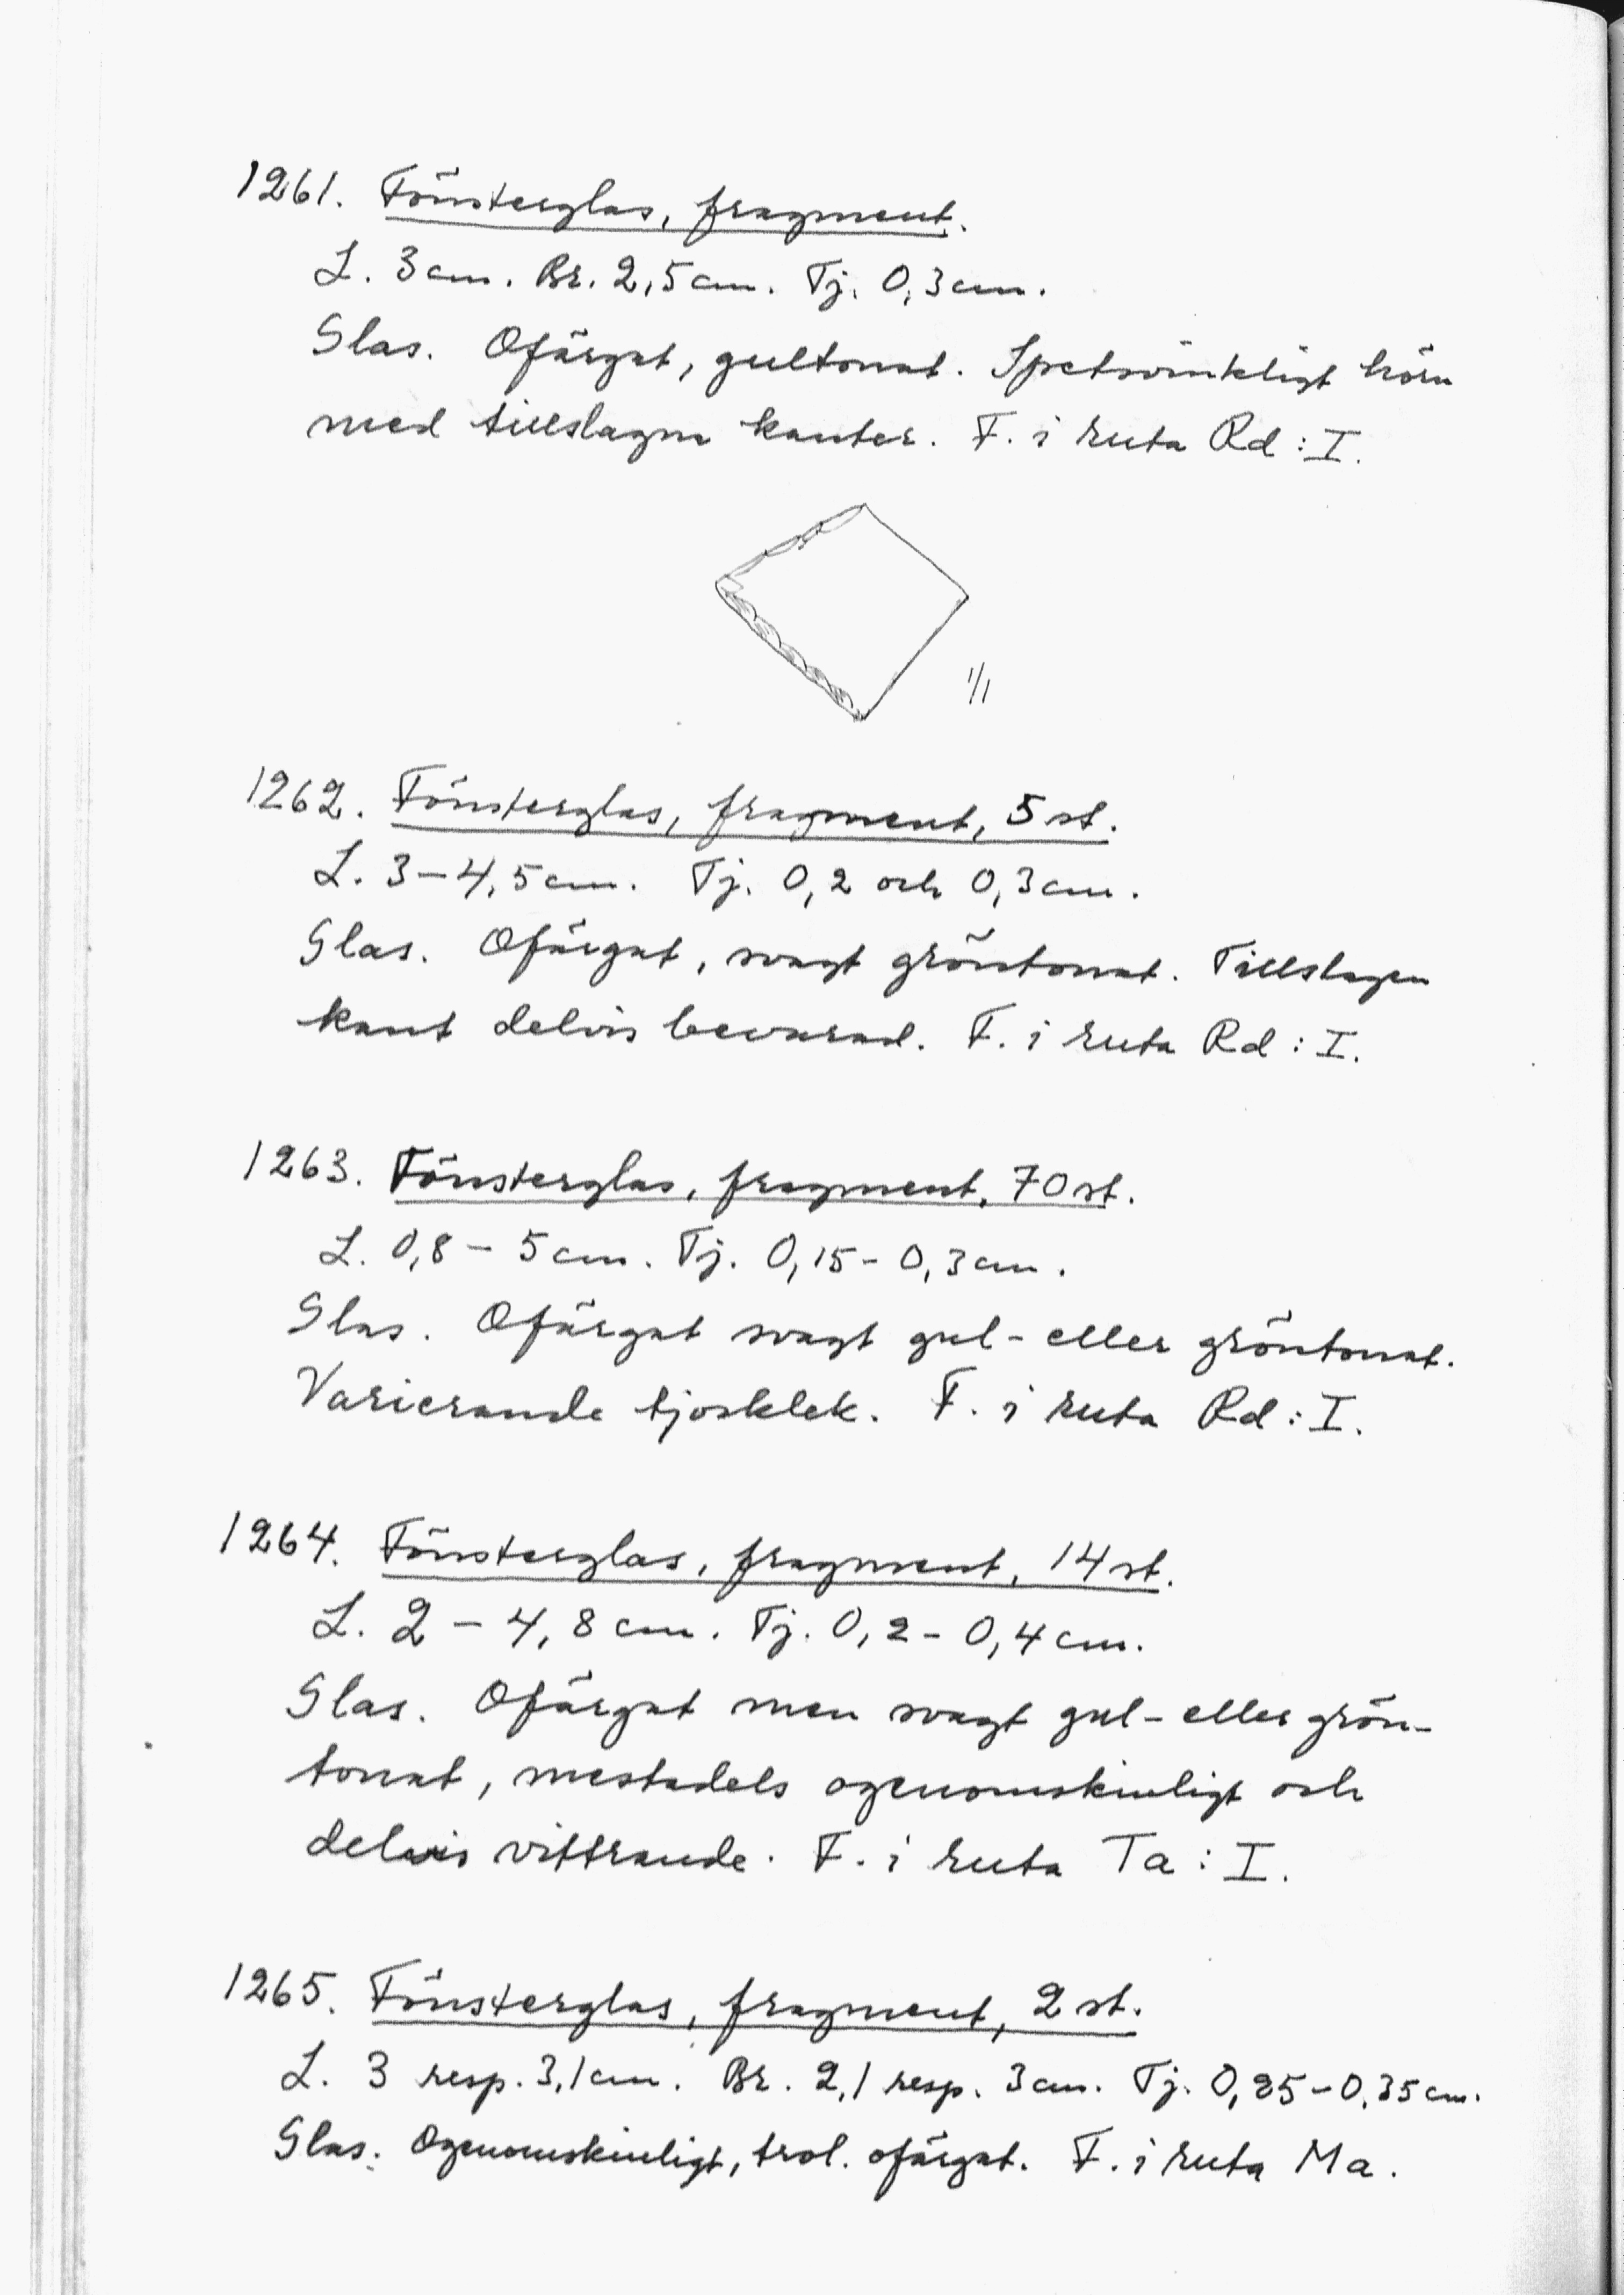 1261. Fönsterglas, fragment.
L. 3 cm. Br. 2,5 cm. Tj. 0,3 cm.
Glas. Ofärgat, gultonat. Spetsvinkligt hörn
med tillslagna kanter. F. i ruta Rd : I.
1/1
1262. Fönsterglas, fragment, 5 st.
L. 3 – 4,5 cm. Tj. 0,2 och 0,3 cm.
Glas. Ofärgat, svagt gröntonat. Tillslagen
kant delvis bevarad. F. i ruta Rd : I.
1263. Fönsterglas, fragment, 70 st.
L. 0,8 – 5 cm. Tj. 0,15 - 0,3 cm.
Glas. Ofärgat svagt gul- eller gröntonat.
Varierande tjocklek. F. i ruta Rd : I.
1264. Fönsterglas, fragment, 14 st.
L. 2 – 4,8 cm. Tj. 0,2 - 0,4 cm.
Glas. Ofärgat men svagt gul- eller grön-
tonat, mestadels ogenomskinligt och
delvis vittrande. F. i ruta Ta : I.
1265. Fönsterglas, fragment, 2 st.
L. 3 resp. 3,1 cm. Br. 2,1 resp. 3 cm. Tj. 0,25 – 0,35 cm.
Glas. Ogenomskinligt, trol. ofärgat. F. i ruta Ma.